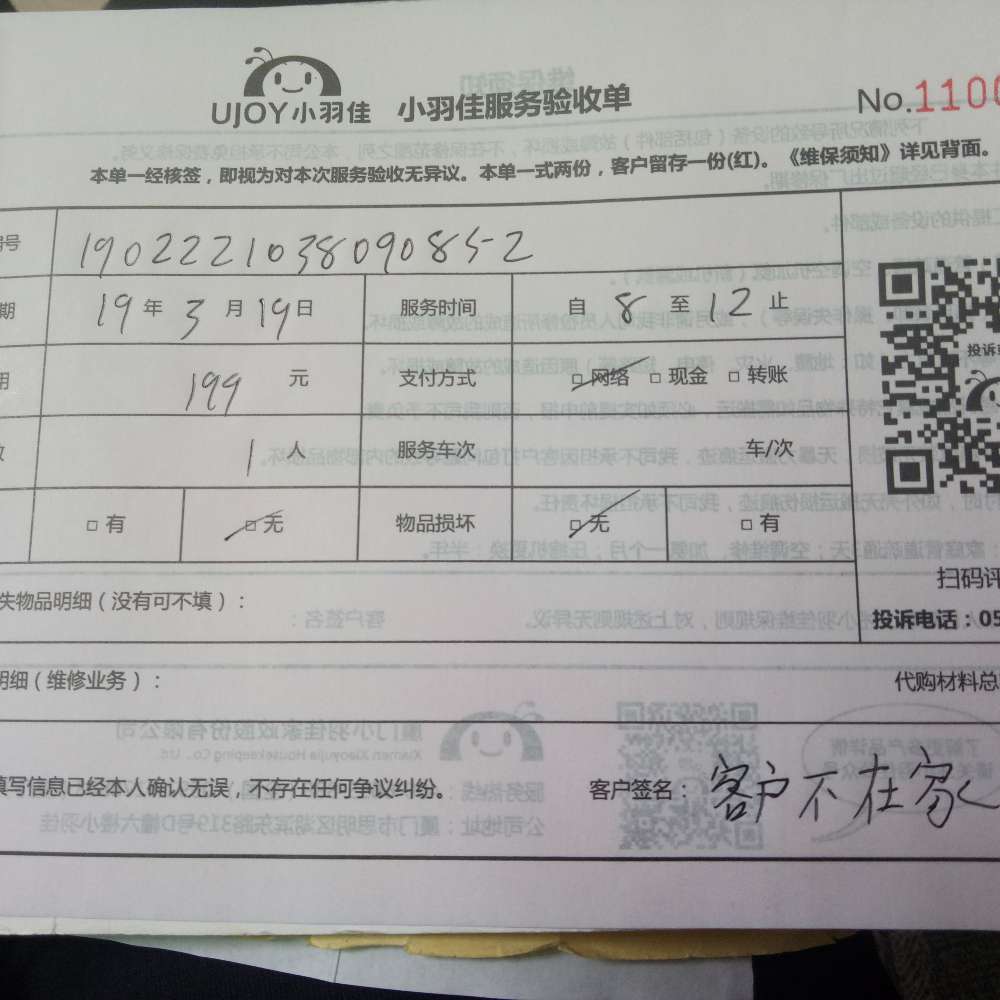 UJOY小羽佳 小羽佳服务验收单 No.1100
本单一经核签，即视为对本次服务验收无异议。本单一式两份，客户留存一份(红)。《维保须知》详见背面。
号 190222103809085-2
期 19年3月19日 服务时间 自8至12止
用 199元 支付方式 □网络 □现金 □转账
数 1人 服务车次 车/次
□有 □无 物品损坏 □无 □有
投诉
扫码评
失物品明细（没有可不填）：
投诉电话：05
明细（维修业务）： 代购材料总
填写信息已经本人确认无误，不存在任何争议纠纷。 客户签名：客户不在家